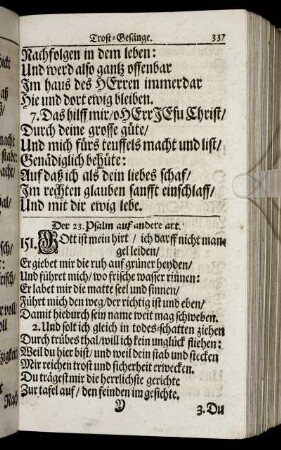 Trost-Gesänge. 337
Nachfolgen in dem leben:
Und werd also gantz offenbar
Im haus des HErren immerdar
Hie und dort ewig bleiben.
7. Das hilff mir/ oHErr JEsu Christ/
Durch deine grosse güte/
Und mich fürs teuffels macht und list/
Genädiglich behüte:
Auf daß ich als dein liebes schaf/
Im rechten glauben sanfft einschlaff/
Und mit dir ewig lebe.
Der 23. Psalm auf andere art.
151. GOtt ist mein hirt / ich darff nicht man-
gel leiden/
Er giebet mir die ruh auf grüner heyden/
Und führet mich/ wo frische wasser rinnen:
Er labet mir die matte seel und sinnen/
Führt mich den weg/ der richtig ist und eben/
Damit hiedurch sein name weit mag schweben.
2. Und solt ich gleich in todes-schatten ziehen
Durch trübes thal/ will ich kein unglück fliehen:
Weil du hier bist/ und weil dein stab und stecken
Mir reichen trost und sicherheit erwecken.
Du trägest mir die herrlichste gerichte
Zur tafel auf/ den feinden im gesichte.
Y 3. Du